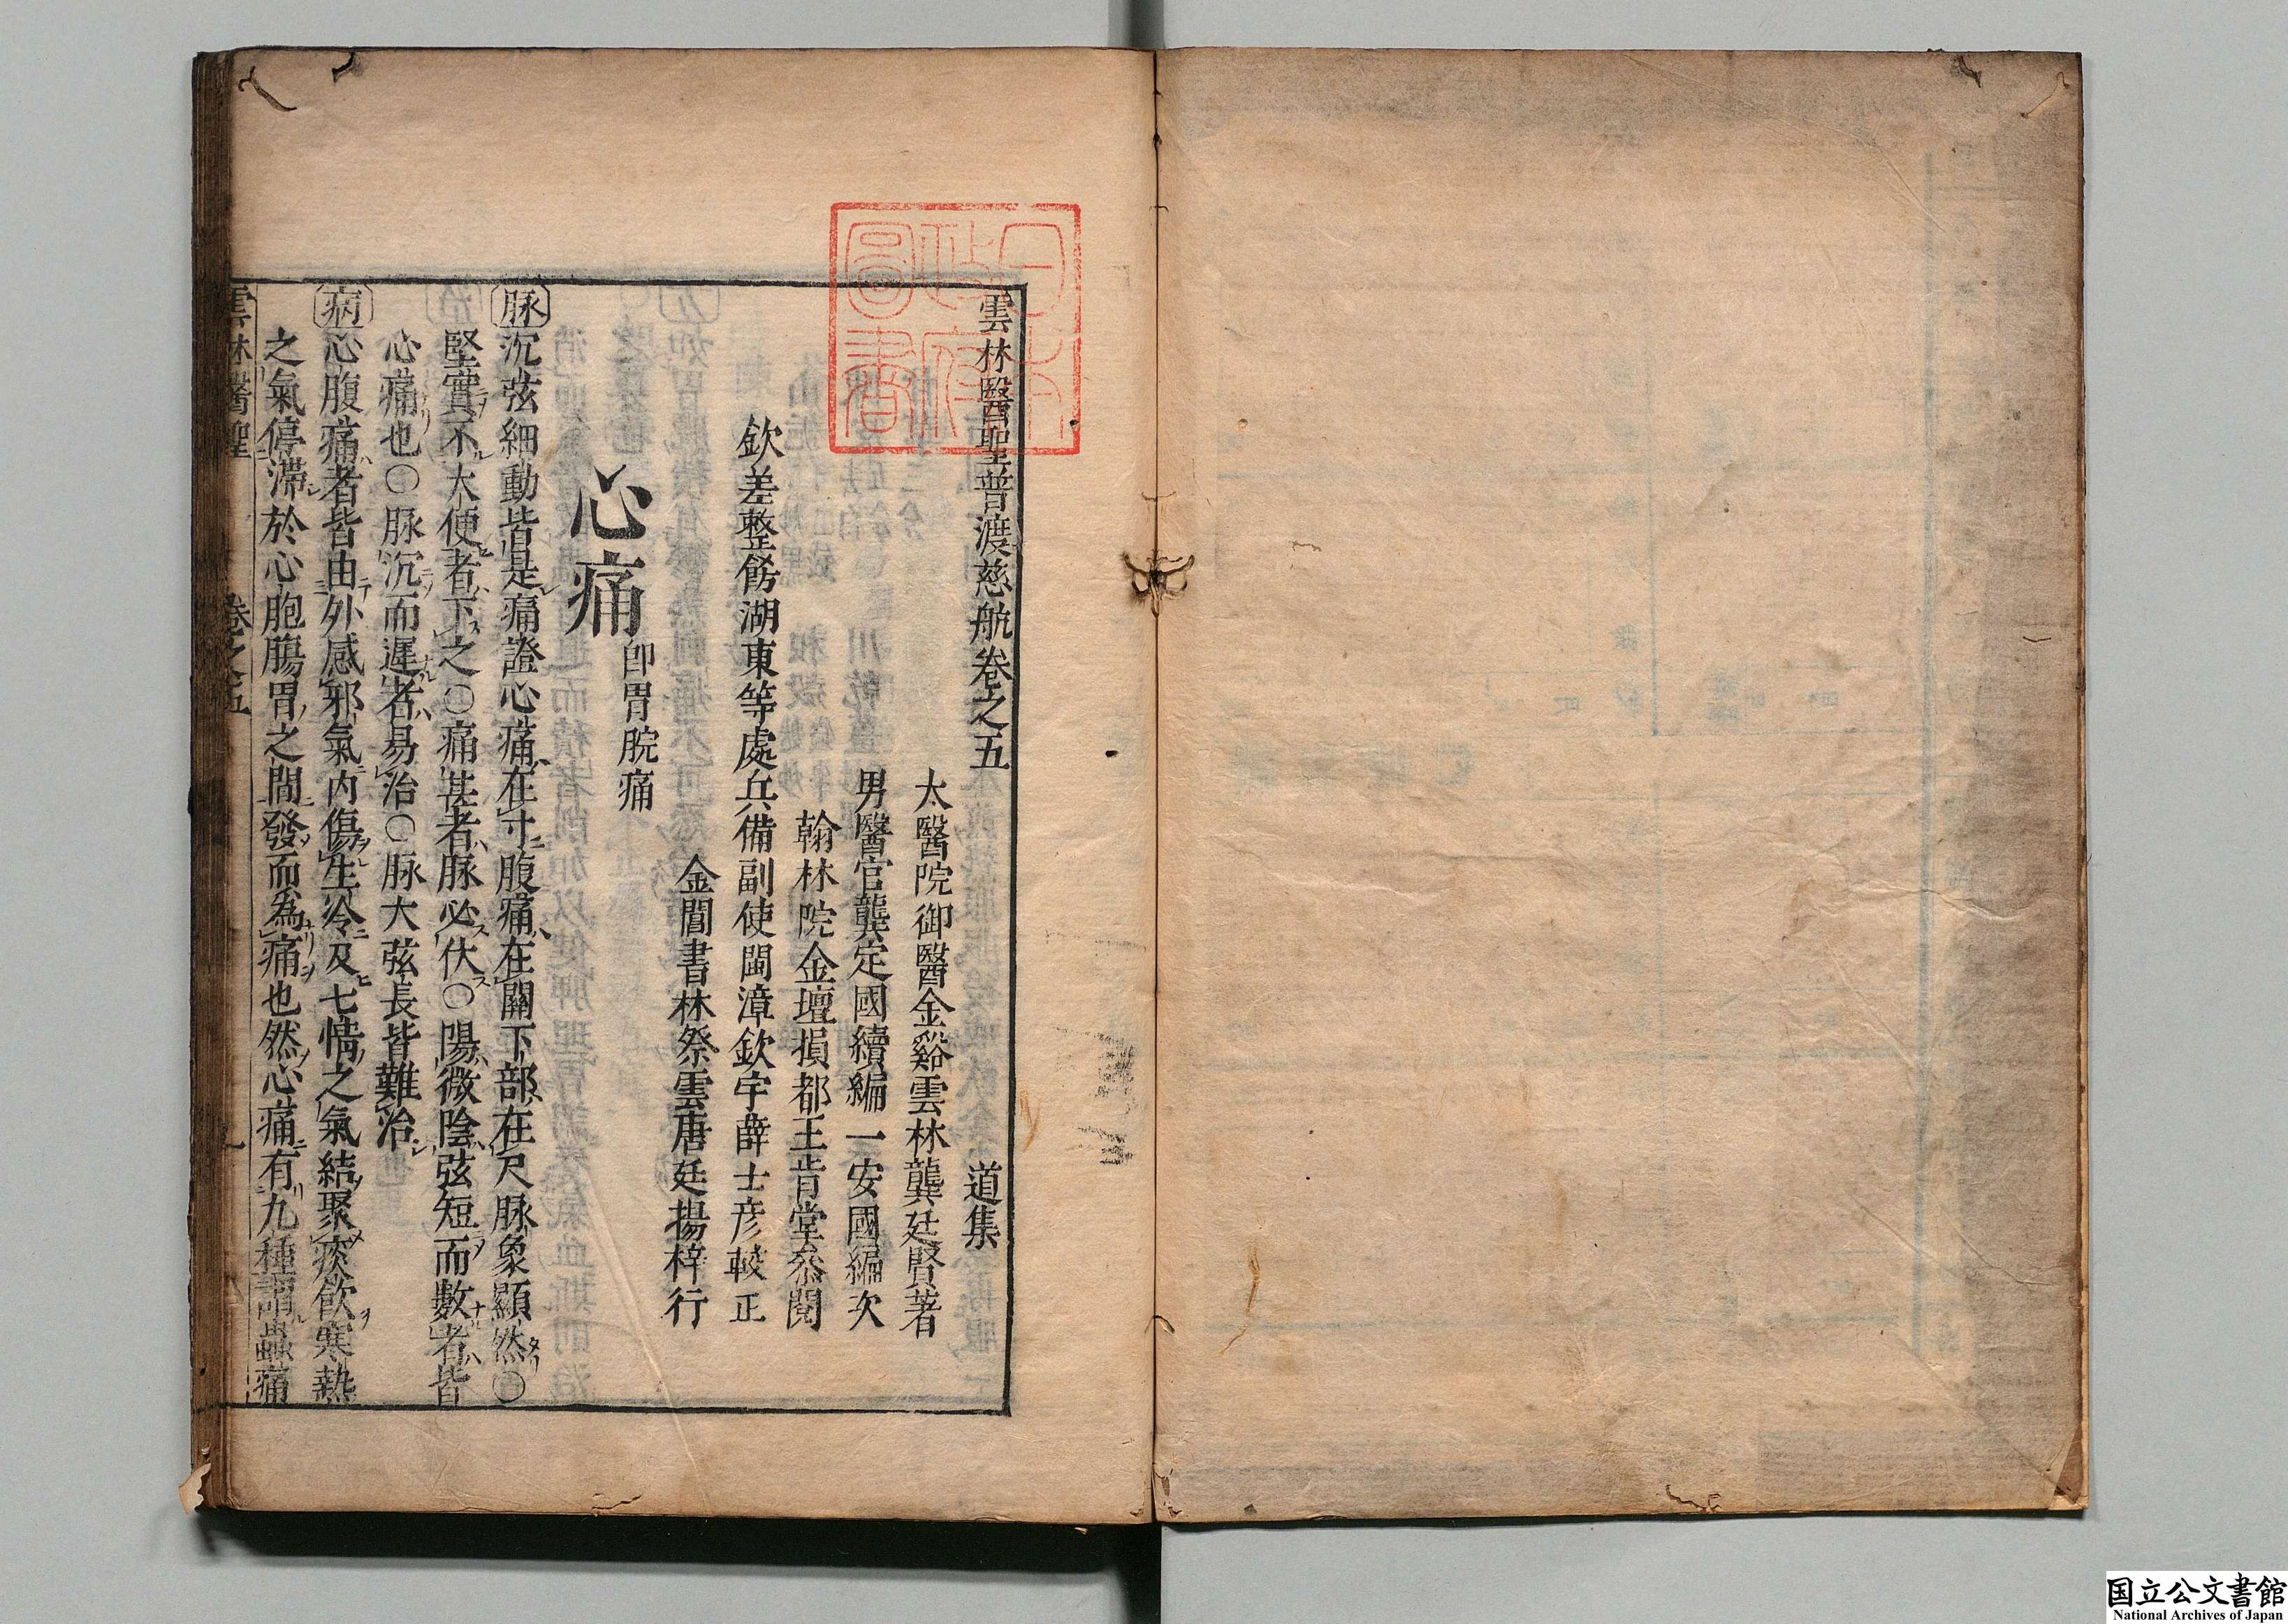 雲林醫聖普渡慈航卷之五
道集
太醫院御醫金谿雲林龔廷賢著
男醫官龔定國續編一安國編次
翰林院金壇損都王肯堂叅閱
欽差整飭湖東等處兵備副使閩漳欽宇薛士彥較正
金閶書林祭雲唐廷揚梓行
心痛 卽胃脘痛
脉沉弦細動皆是痛證心痛在寸腹痛在關下部在尺脉象顯然〇
堅實不大便者下之〇痛甚者脉必伏〇陽微陰弦短而數者皆
心痛也〇脉沉而遲者易治〇脉大弦長皆難治
病心腹痛者皆由外感邪氣内傷生冷及七情之氣結聚痰飲寒熱
之氣停滯於心胞腸胃之間發而為痛也然心痛有九種謂蟲痛
雲林醫聖 卷之五 一
日本政府圖書
国立公文書館
National Archives of Japan